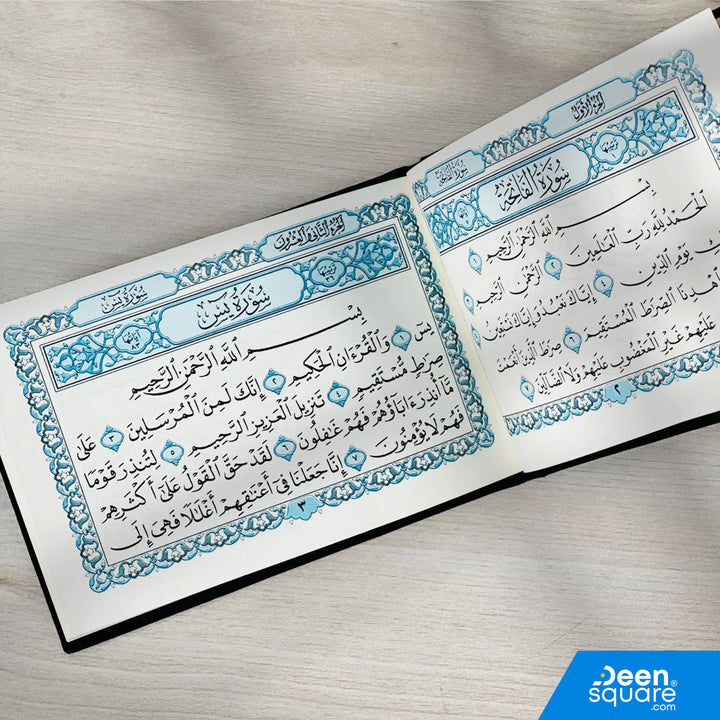 الجزء الأول
سورة الفاتحة
سورة الفاتحة
بسم الله الرحمن الرحيم ١
الحمد لله رب العلمين ٢ الرحمن الرحيم
يوم الدين ٤ إياك نعبد وإياك نستعين
اهدنا الصرط المستقيم ٦ صرط الذين أنعمت
عليهم غير المغضوب عليهم ولا الضالين
٢
الجزء الثاني والعشرون
سورة يس
سورة يس
بسم الله الرحمن الرحيم
يس ١ والقرءان الحكيم ٢ إنك لمن المرسلين ٣ على
صرط مستقيم ٤ تنزيل العزيز الرحيم ٥ لتنذر قوما
ما أنذر ءاباؤهم فهم غفلون ٦ لقد حق القول على أكثرهم
فهم لا يؤمنون ٧ إنا جعلنا في أعنقهم أغللا فهي إلى
٣
Deen
square
.com